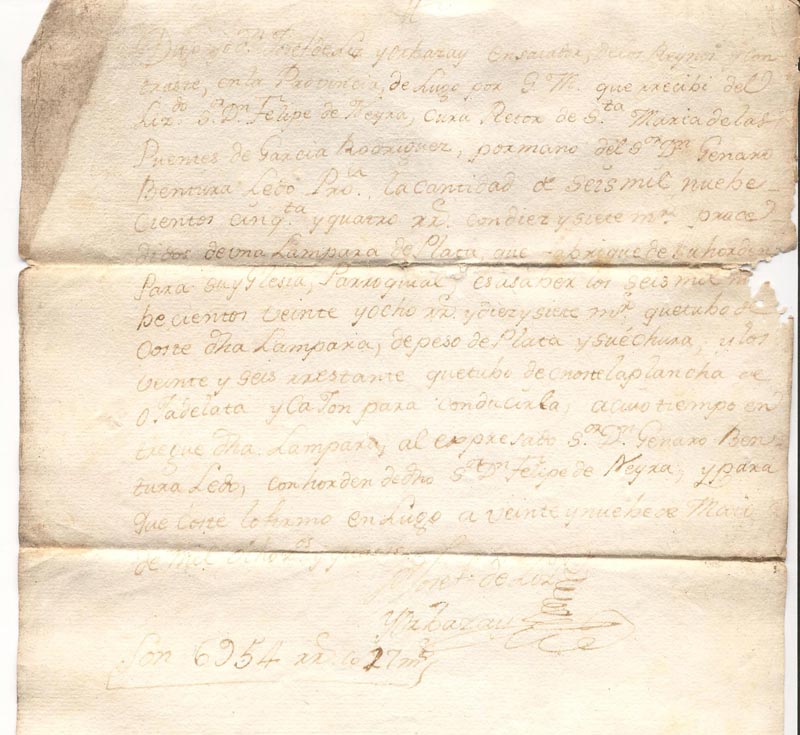 Digo yo Dn Josef de Liz y Orbazay ensaiador, de los Reynos y con
traste, en la Provincia, de Lugo por S. M. que rrecibi del
Lizdo Sr Dn Felipe de Neyra, Cura Retor de Sta Maria de las
Puentes de Garcia Rodriguez, por mano del Sor Dn Genaro
Bentura Ledo Prоia, la cantidad de seis mil nuebe-
cientos cinqta y quatro rrs. con diez y siete mrs proce
didos de una Lampara de Plata que fabrique de su horden
Para su yglesia, Parroquial, es a saber los seis mil nue
be cientos veinte y ocho rrs. y diez y siete mrs que tubo de
Coste dha Lampara, de peso de Plata y suechura, y los
veinte y seis rrestante que tubo de coste la plancha de
Oja de lata y Caxon para conducirla, a cuio tiempo en
tregue dha. Lampara, al expresado Sor Dn Genaro Ben
tura Ledo, con horden de dho Sor Dn Felipe de Neyra, y para
que Coste lo firmo en Lugo a veinte y nuebe de Maio
de mil ochos y
Josef. de Liz
y Orbazay
Son 6954 rrs. co 17 ms